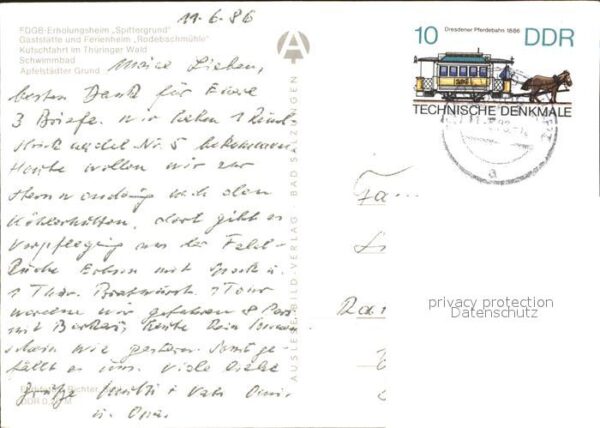 11.6.86
FDGB-Erholungsheim „Spittergrund"
Gaststätte und Ferienheim „Rodebachmühle"
Kutschfahrt im Thüringer Wald
Schwimmbad
Apfelstädter Grund
Meine Lieben,
besten Dank für Eure
3 Briefe. wir haben
Nr. 5 bekommen
Heute wollen wir zur
Sternwanderung nach den
Köhlerhütten, dort gibt es
Verpflegung aus der Feld-
küche Erbsen mit Speck u.
1 Thür. Bratwurst. 1 Tour
werden wir gefahren 8 Pers
mit Barkas, heute kein Sonnen
schein wie gestern. Sonst ge-
fällt es uns. Viele liebe
Grüße Mutti + Vati Omi
u. Opa.
Richter
DDR 0,20 M
AUSLESE-BILD-VERLAG BAD SALZUNGEN
A
Dresdener Pferdebahn 1886
10 DDR
TECHNISCHE DENKMALE
a
Fa
privacy protection
Datenschutz